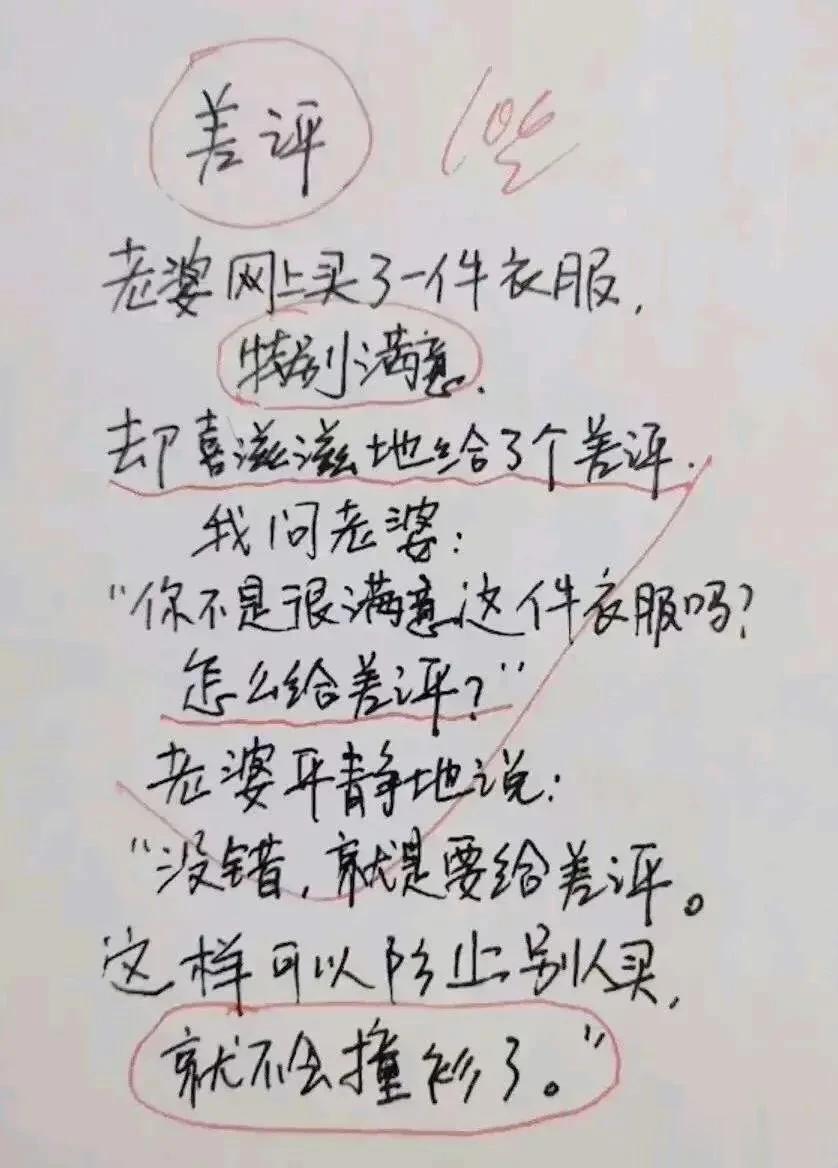 差评
老婆网上买了一件衣服，
特别满意．
却喜滋滋地给了个差评．
我问老婆：
“你不是很满意这件衣服吗？
怎么给差评？”
老婆平静地说：
“没错，就是要给差评。
这样可以防止别人买，
就不会撞衫了。”